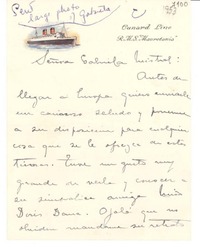 Send
large photo
of Gabriela
Cunard Line
R.M.S. "Mauretania"
Señora Gabriela Mistral:
Antes de
llegar a Europa quiero enviarle
un cariñoso saludo y ponerme
a su disposición para cualquier
cosa que se le ofrezca en estas
tierras. Tuve un gusto muy
grande de verla y conocer a
su simpática amiga
Doris Dana. Ojalá que no
olviden mandarme su retrato